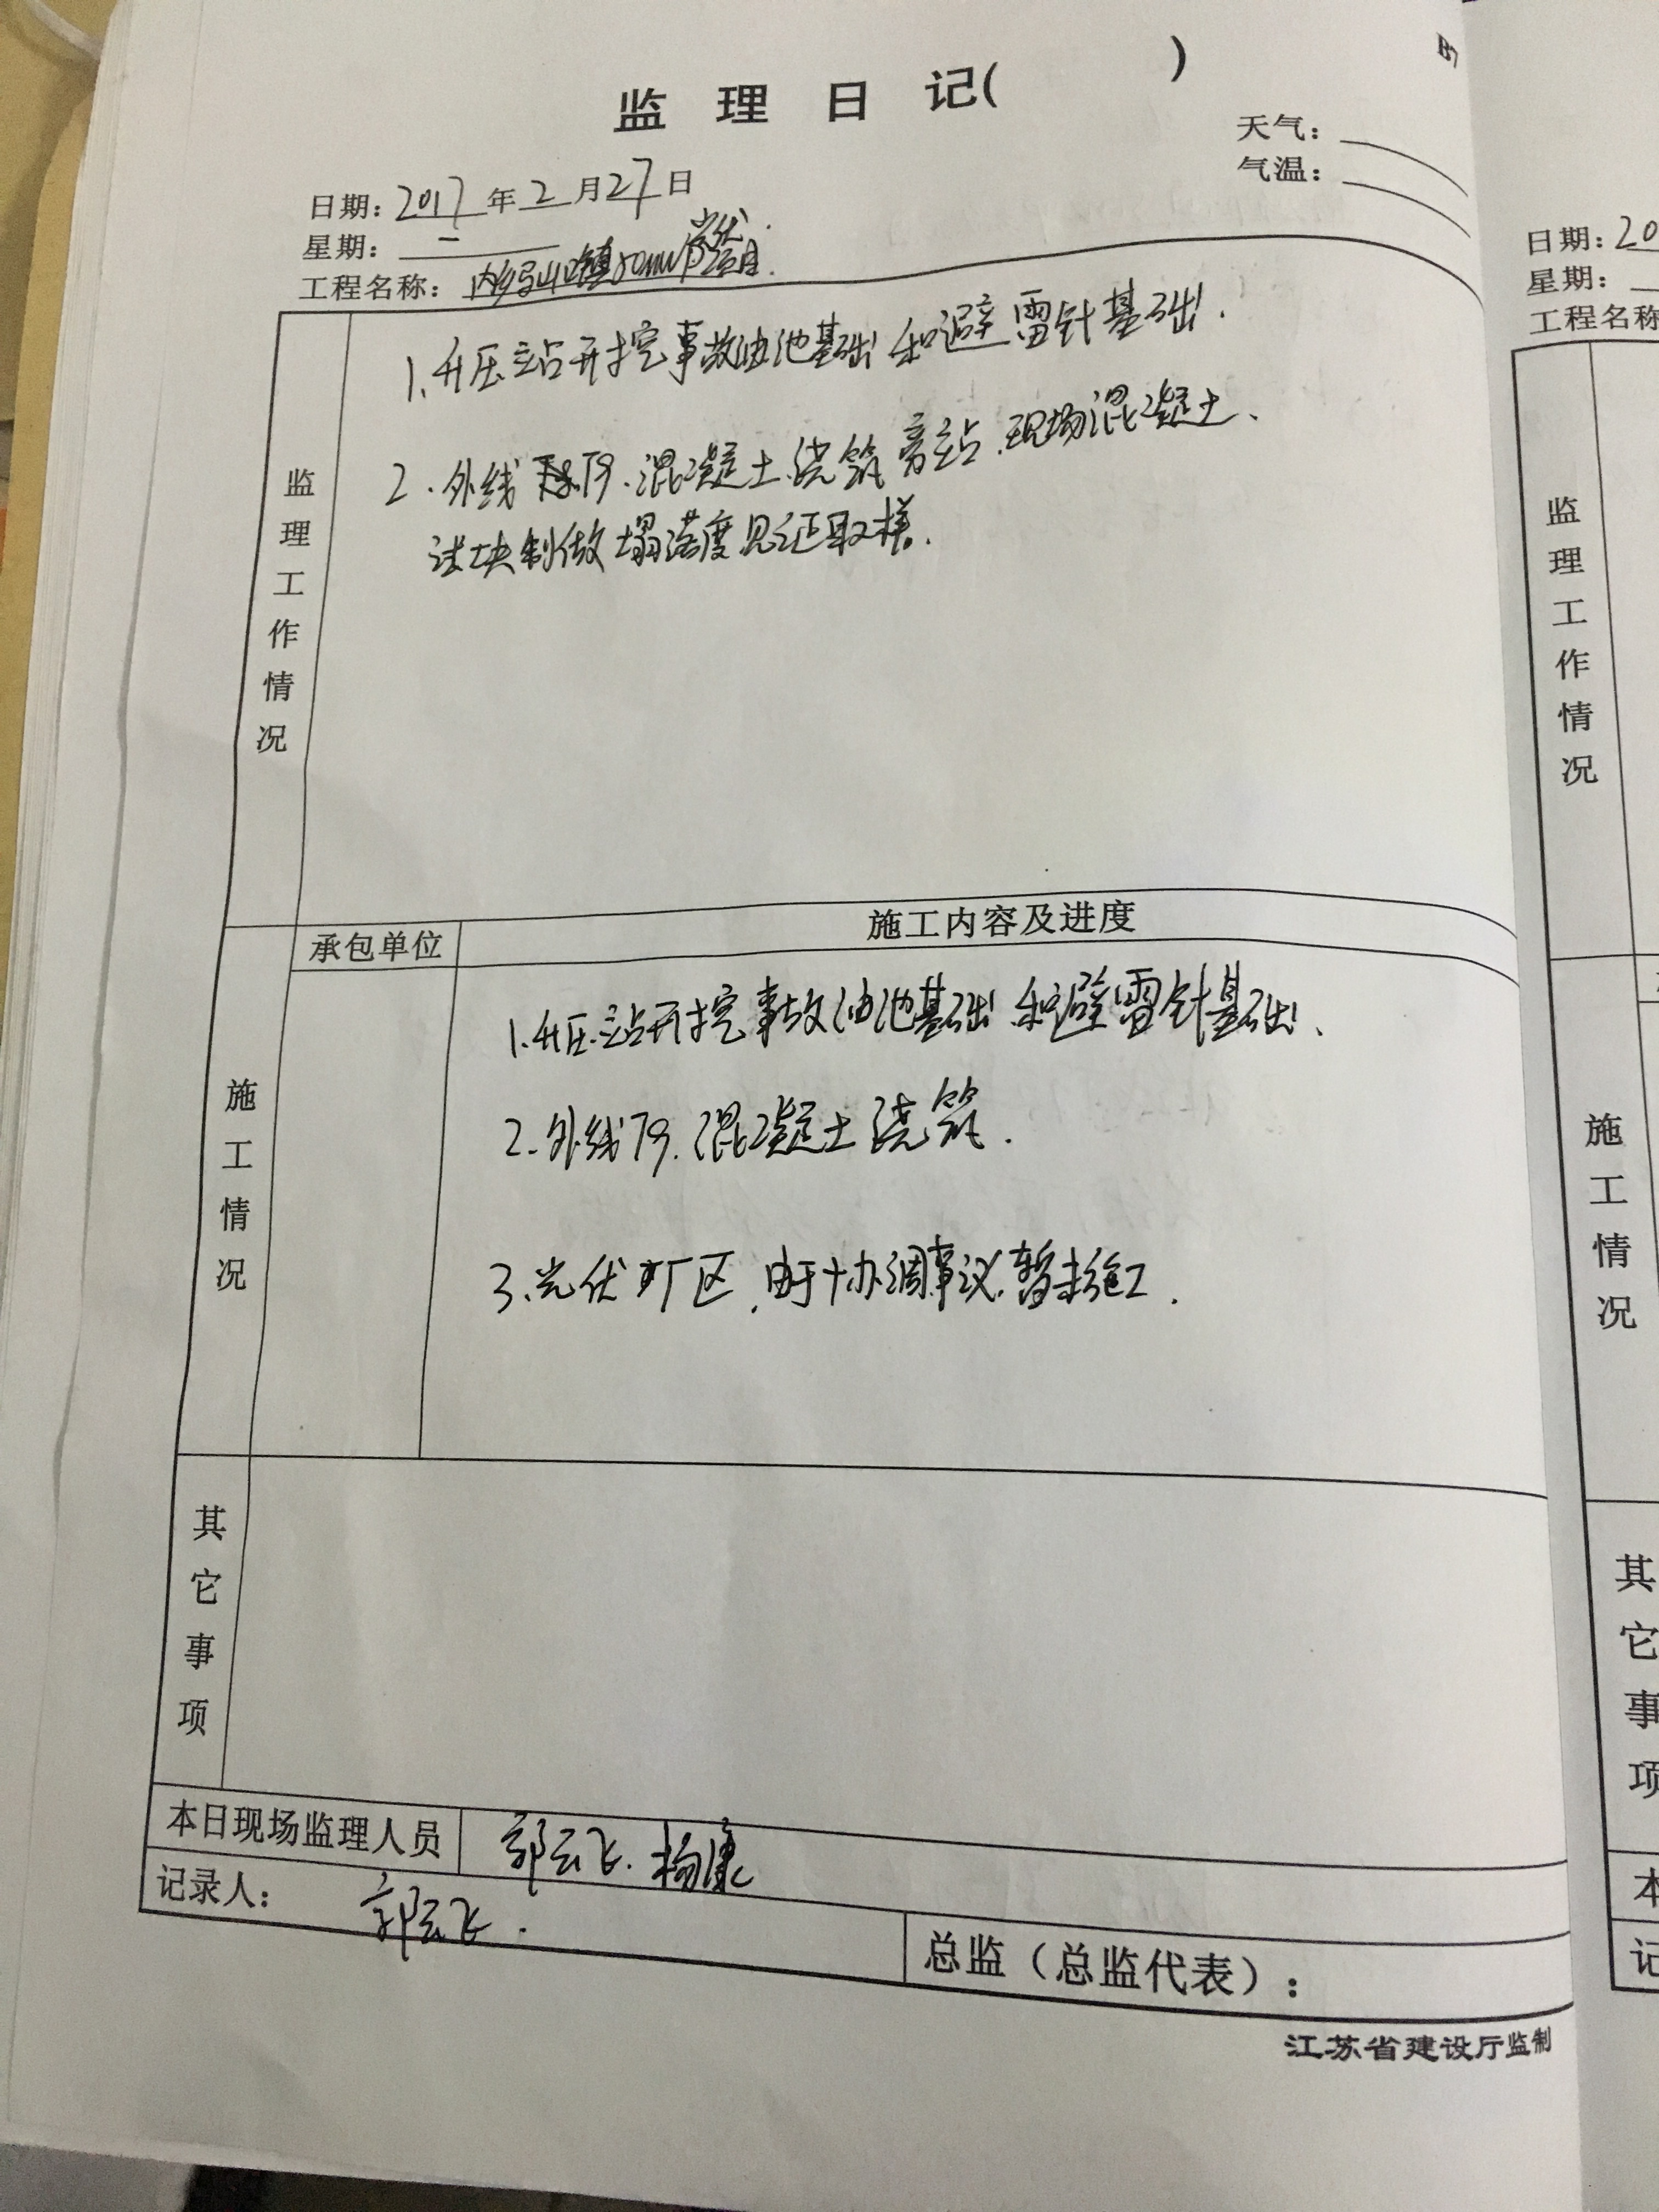 监理日记( )
B7
天气:
气温:
日期:2017年2月27日
星期:一
工程名称:内乡马山口镇50mw光伏项目.
监理工作情况
1、升压站开挖事故油池基础和避雷针基础.
2.外线T9.混凝土浇筑旁站.现场混凝土、
试块制做塌落度见证取样.
施工情况
承包单位
施工内容及进度
1.升压站开挖事故油池基础和避雷针基础、
2.外线T9.混凝土浇筑.
3、光伏厂区,由于协调事议.暂未施工.
其它事项
本日现场监理人员
郭云飞.杨康
记录人:郭云飞.
总监(总监代表):
江苏省建设厅监制
日期:20
星期:
工程名称
监理工作情况
施工情况
其它事项
本
记